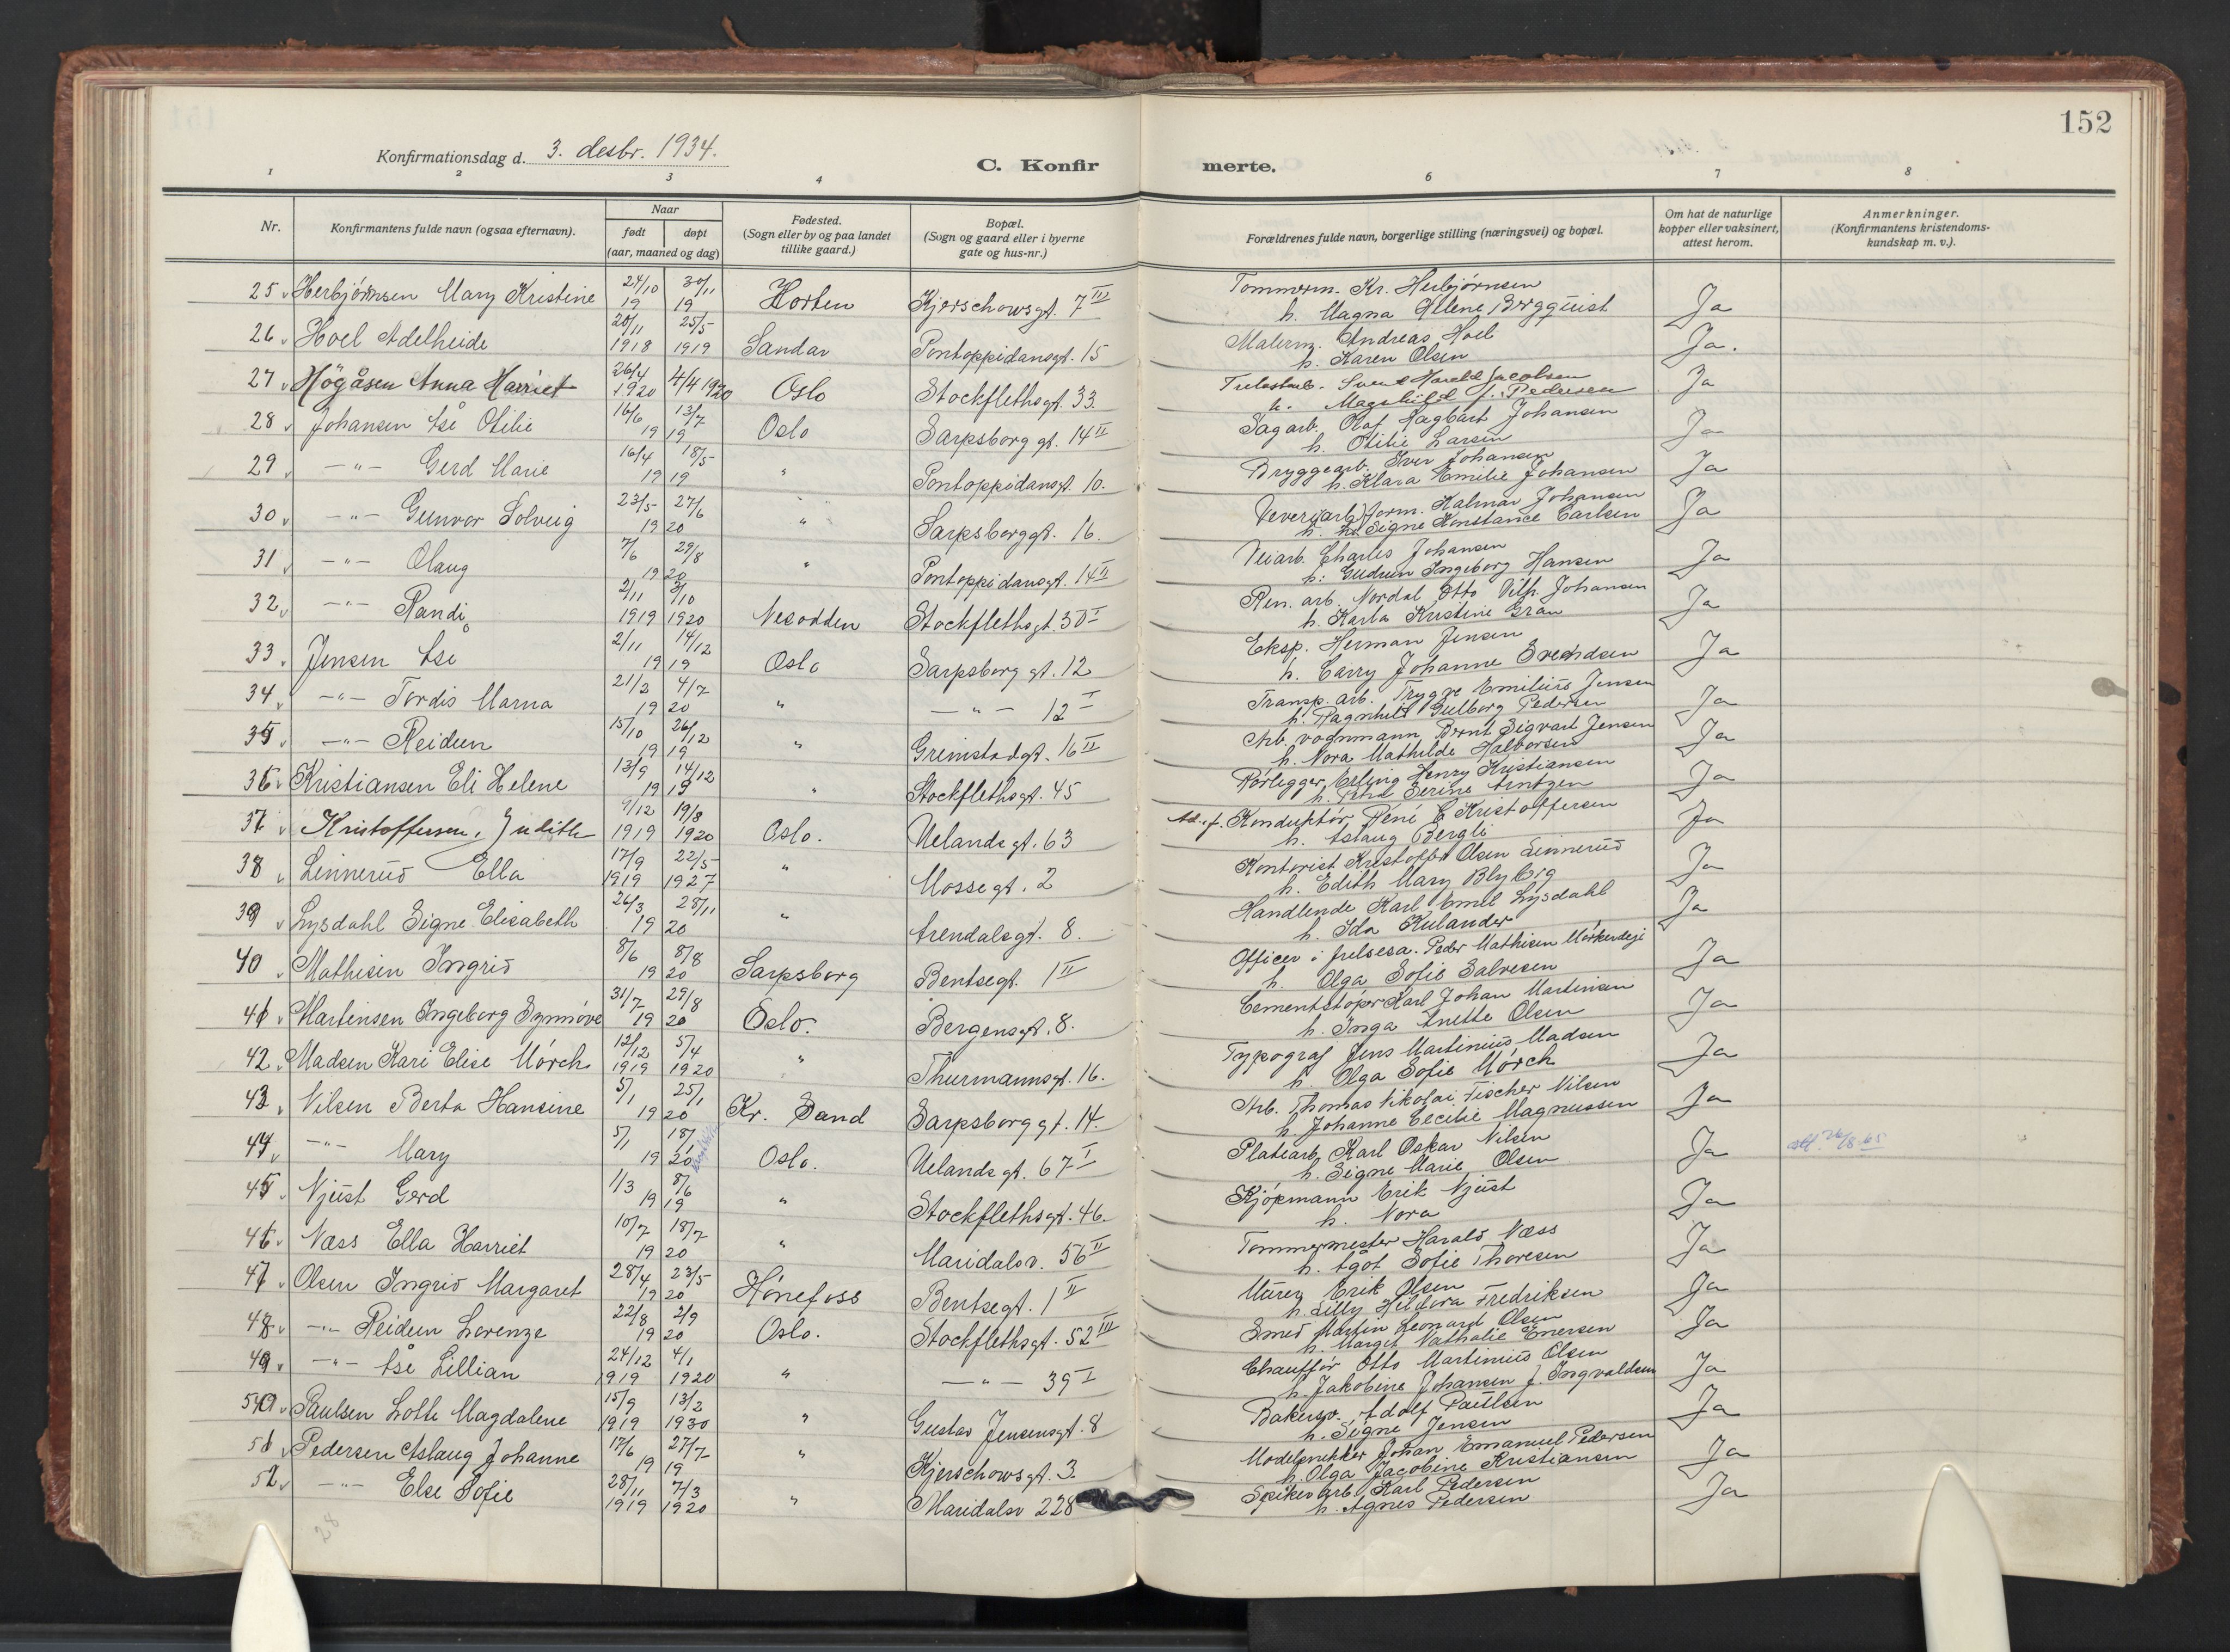 152
Konfirmationsdag d. 3. desbr. 1934.
C. Konfirmerte.
1 2 3 4 6 7 8
Nr.
Konfirmantens fulde navn (ogsaa efternavn).
Naar
født døpt
(aar, maaned og dag)
Fødested.
(Sogn eller by og paa landet
tillike gaard.)
Bopæl.
(Sogn og gaard eller i byerne
gate og hus-nr.)
Forældrenes fulde navn, borgerlige stilling (næringsvei) og bopæl.
Om hat de naturlige
kopper eller vaksinert,
attest herom.
Anmerkninger.
(Konfirmantens kristendoms-
kundskap m. v.).
25 Herbjörnsen Mary Kristine 24/10 19 30/11 19 Horten Kjerschowsgt. 7 III Tommerm. Kr. Herbjörnsen Ja
h. Magna Helene Bergquist
26 Hoel Adelheide 20/11 1918 25/5 1919 Sandar Pontoppidansgt. 15 Malerm. Andreas Hoel Ja.
h. Karen Olsen
27 Högåsen Anna Harriet 26/4 1920 4/4 1920 Oslo Stockflethsgt. 33. Svend Harald Jacobsen Ja
h. Magnhild f. Pedersen
28 Johansen Åse Otilie 16/6 13/7 1919 Oslo Sarpsborg gt. 14 II Sagarb. Olaf Hagbart Johansen Ja
h. Otilie Larsen
29 -"- Gerd Marie 16/4 18/5 1919 " Pontoppidansgt. 10. Bryggearb. Iver Johansen Ja
h. Klara Emilie Johansen
30 -"- Gunvor Solveig 23/5 27/6 1920 " Sarpsborggt. 16. Veveriarb. form. Halmar Johansen Ja
h. Signe Konstance Carlsen
31 -"- Olaug 7/6 29/8 1920 " Pontoppidansgt. 14 II Veiarb. Charles Johansen Ja
h. Gudrun Ingeborg Hansen
32 -"- Randi 2/11 1919 3/10 1920 Nesodden Stockflethsgt. 30 I Ren. arb. Nordal Otto Vilh. Johansen Ja
h. Karla Kristine Gran
33 Jensen Åse 2/11 14/12 1919 Oslo Sarpsborg gt. 12 Eksp. Herman Jensen Ja
h. Carry Johanne Svendsen
34 -"- Tordis Marna 21/2 4/7 1920 " -"- 12 I Transp. arb. Trygve Emilius Jensen Ja
h. Ragnhild Gulborg Pedersen
35 -"- Reidun 15/10 26/12 1919 " Grimstadgt. 16 II Arb. vognmann Bernt Sigvart Jensen Ja
h. Nora Mathilde Halvorsen
36 Kristiansen Eli Helene 13/9 14/12 1919 " Stockflethsgt. 45 Rörlegger Erling Henry Kristiansen Ja
h. Serine Arntzen
37 Kristoffersen, Judith 9/12 1919 19/8 1920 Oslo. Uelandsgt. 63 Ad.f. Konduktör Réné C Kristoffersen Ja
h. Aslaug Bergli
38 Linnerud Ella 17/9 1919 22/5 1927 " Mossegt. 2 Kontorist Kristoffer Olsen Linnerud Ja
h. Edith Mary Blyberg
39 Lysdahl Signe Elisabeth 26/3 28/11 1920 " Arendalsgt. 8. Handlende Karl Emil Lysdahl Ja
h. Ida Kulander
40 Mathisen Ingrid 8/6 8/8 1920 Sarpsborg Bentsegt. 1 II Officer i frelsesa. Peder Mathisen Ja
h. Olga Sofie Salvesen
41 Martinsen Ingeborg Synnöve 31/7 29/8 1920 Oslo. Bergensgt. 8. Cementstöper Karl Johan Martinsen Ja
h. Inga Anette Olsen
42 Madsen Kari Elise Mörch 12/12 1919 5/4 1920 " Thurmannsgt. 16. Typograf Jens Martinius Madsen Ja
h. Olga Sofie Mörch
43 Nilsen Berta Hansine 5/1 25/1 1920 Kr. Sand Sarpsborg gt. 14. Arb. Thomas Nikolai Fischer Nilsen Ja
h. Johanne Cecilie Magnussen
44 -"- Mary 5/1 18/1 1920 Oslo. Uelandsgt. 67 I Platearb. Karl Oskar Nilsen Ja att. 26/8 65
h. Signe Marie Olsen
45 Njust Gerd 1/3 8/6 1919 " Stockflethsgt. 46. Kjöpmann Erik Njust Ja
h. Nora
46 Næss Ella Harriet 10/7 18/7 1920 " Maridalsv. 56 II Tommermester Harald Næss Ja
h. Ågot Sofie Thoresen
47 Olsen Ingrid Margaret 28/4 23/5 1920 Hönefoss Bentsegt. 1 II Murer Erik Olsen Ja
h. Lilly Heldora Fredriksen
48 -"- Reidun Lorenze 22/8 2/9 1920 Oslo. Stockflethsgt. 52 III Smed Martin Leonard Olsen Ja
h. Marget Nathalie Enersen
49 -"- Åse Lillian 24/12 1919 4/1 1920 " -"- 39 I Chaufför Otto Martinius Olsen Ja
h. Jakobine Johansen f. Ingvaldsen
50 Paulsen Lotte Magdalene 15/9 1919 13/2 1930 " Gustav Jensensgt. 8 Bakersv. Adolf Paulsen Ja
h. Signe Jensen
51 Pedersen Aslaug Johanne 17/6 27/7 1919 " Kjerschowsgt. 3. Modelsnekker Johan Emanuel Pedersen Ja
h. Olga Jacobine Kristiansen
52 -"- Else Sofie 28/11 1919 7/3 1920 " Maridalsv 228 Spikerarb. Karl Pedersen Ja
h. Agnes Pedersen
28